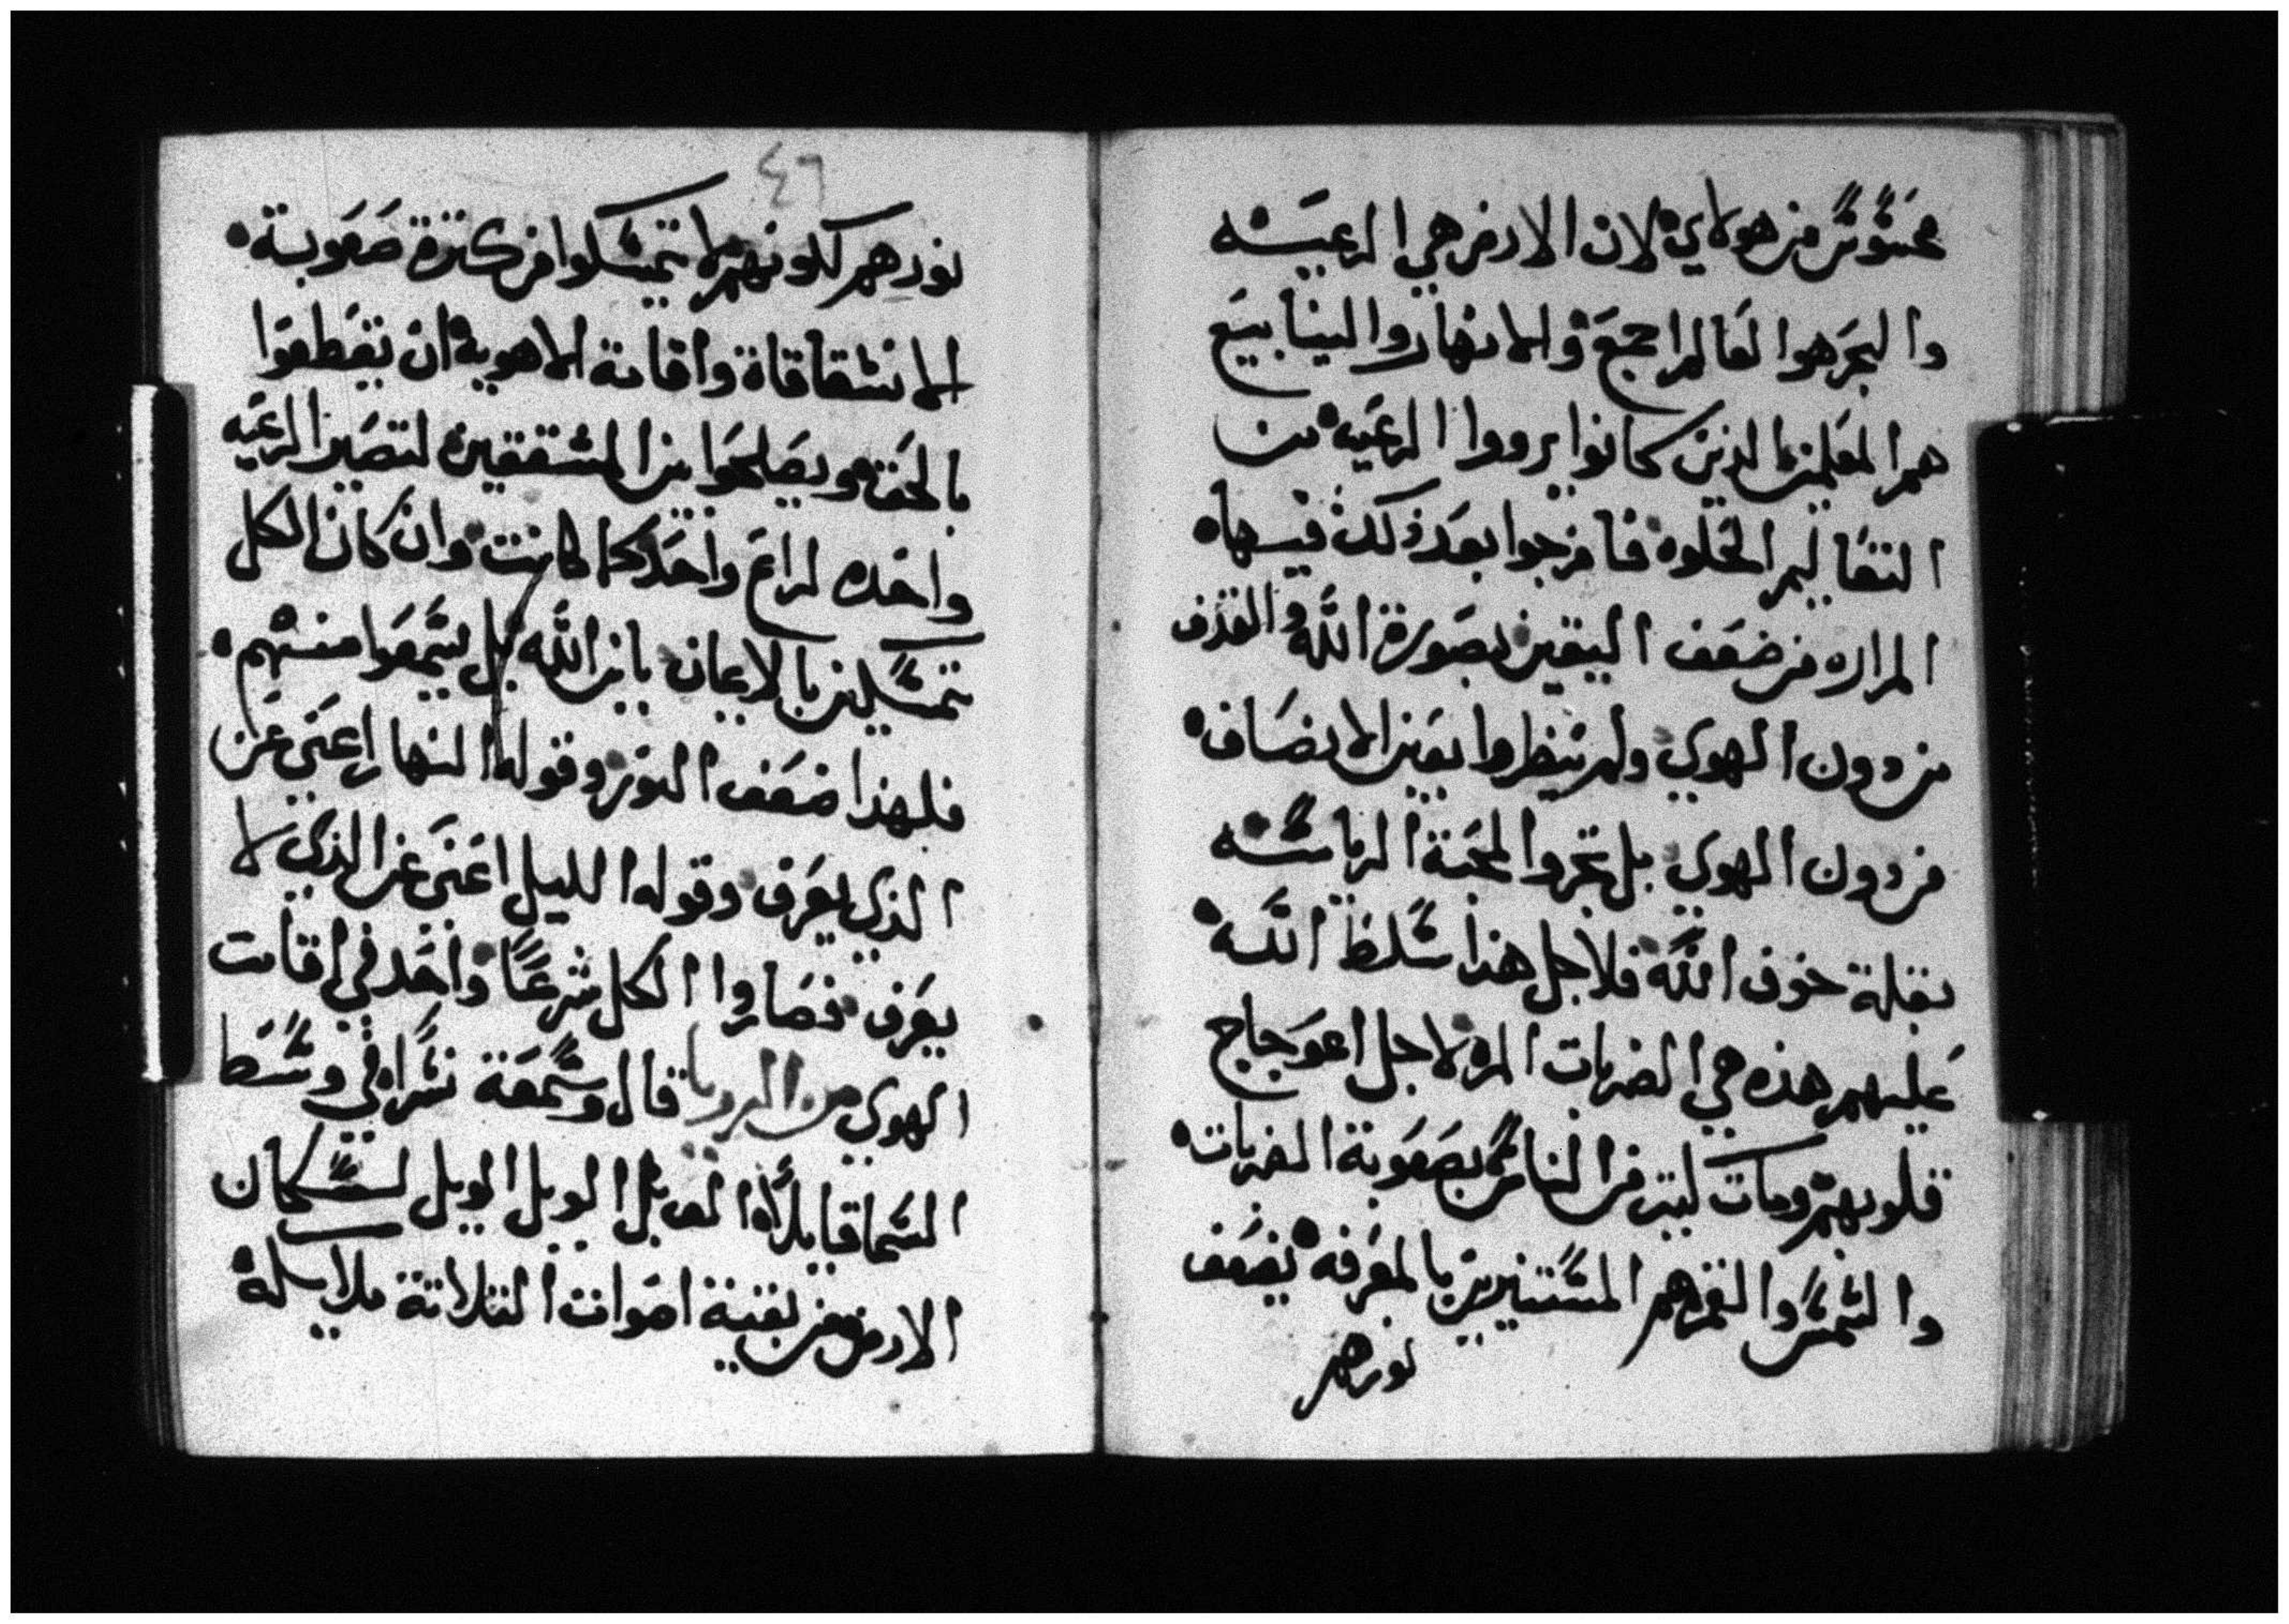 محسوس من هولاي لان الارض هي الرعيه
والبحر هوا لعالم اجمع والانهار والينابيع
هم المعلمين الذين كانوا يرووا الرعيه من
التعاليم الحلوه فامزجوا بعد ذلك فيها
المراره من ضعف اليقين بصورة الله والقذف
من دون الهوي ولم ينظروا بعين الانصاف
من دون الهوي بل تحروا لمحبة الرياسه
بقلة خوف الله فلاجل هذا سلط الله
عليهم هذه هي الضربات المره لاجل اعوجاج
قلوبهم ومات كتير من الناس بصعوبة الضربات
والشمس والقمر هم المستنيرين بالمعرفه يضعف
نورهم
٤٦
نورهم لكونهم لا تمسكوا من كترة صعوبة
الانشقاقاة واقامة الاهوية ان يقطعوا
بالحق ويصلحوا بين المشققين لتصير الرعيه
واحده لراع واحد كما كانت وان كان الكل
تمسكين بالايمان بابن الله بل يسمعوا منهم
فلهذا ضعف النور وقوله النهار اعني عن
الذي يعرف وقوله الليل اعني عن الذي لا
يعرف فصاروا الكل شرعا واحد في اقامت
الهوي من الرويا قال وسمعة نسرا في وسط
السما قايلا الويل الويل لسكان
الارض من بقية اصوات التلاتة ملايكه